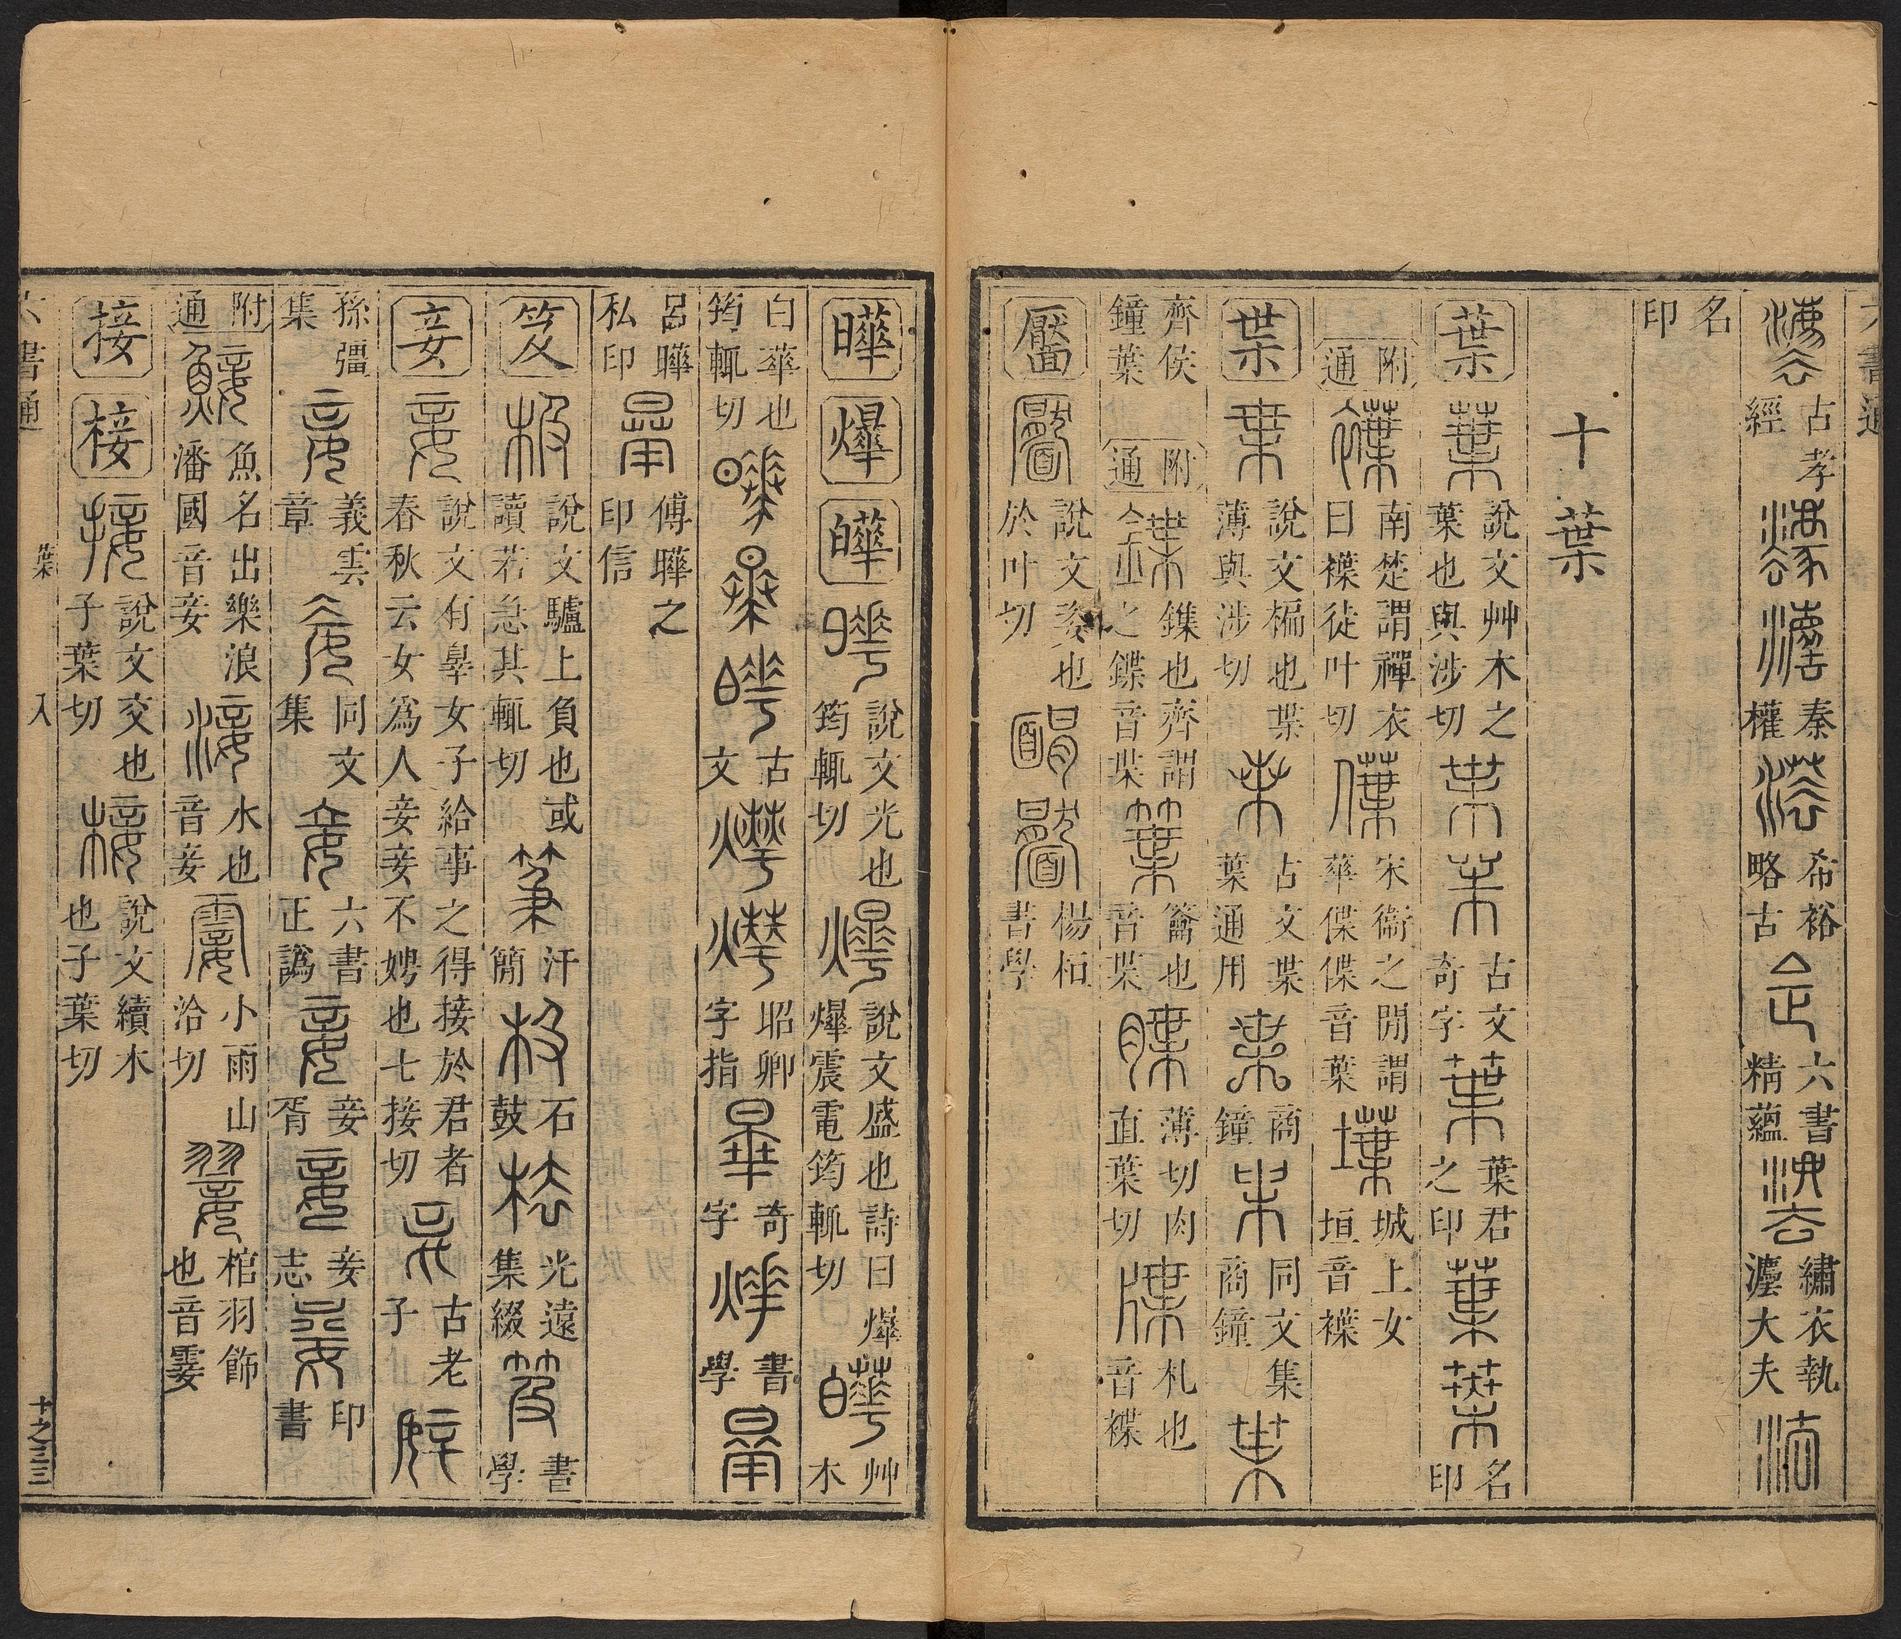 六書通
古孝經 秦權 希裕略古 六書精蘊 繡衣執灋大夫
名印
十葉
葉 說文艸木之葉也與涉切 古文奇字 葉君之印 名印
附通 南楚謂禪衣曰褋徒叶切 宋衞之閒謂華僷僷音葉 城上女垣音褋
枼 說文楄也枼薄與涉切 古文枼葉通用 商鐘 同文集商鐘
齊侯鐘葉 附通 鏶也齊謂之鍱音枼 籥也音枼 薄切肉直葉切 札也音褋
靨 說文姿也於叶切 楊桓書學
曄 爗 皣 說文光也筠輒切 說文盛也詩曰爗爗震電筠輒切 艸木
白華也筠輒切 古文 昭卿字指 奇字 書學
呂曄私印 傅曄之印信
笈 說文驢上負也或讀若急其輒切 汗簡 石鼓 光遠集綴 書學
妾 說文有辠女子給事之得接於君者春秋云女爲人妾妾不娉也七接切 古老子
孫彊集 義雲章 同文集 六書正譌 妾胥 妾志 印書
附通 魚名出樂浪潘國音妾 水也音妾 小雨山洽切 棺羽飾也音霎
接 椄 說文交也子葉切 說文續木也子葉切
六書通 葉 入 十之三三